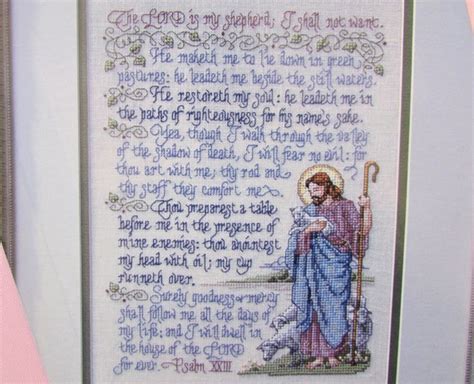 The LORD is my shepherd; I shall not want.
He maketh me to lie down in green
pastures: he leadeth me beside the still waters.
He restoreth my soul: he leadeth me in
the paths of righteousness for his name's sake.
Yea, though I walk through the valley
of the shadow of death, I will fear no evil: for
thou art with me; thy rod and
thy staff they comfort me
Thou preparest a table
before me in the presence of
mine enemies: thou anointest
my head with oil; my cup
runneth over.
Surely goodness & mercy
shall follow me all the days of
my life: and I will dwell in
the house of the LORD
for ever. Psalm XXIII